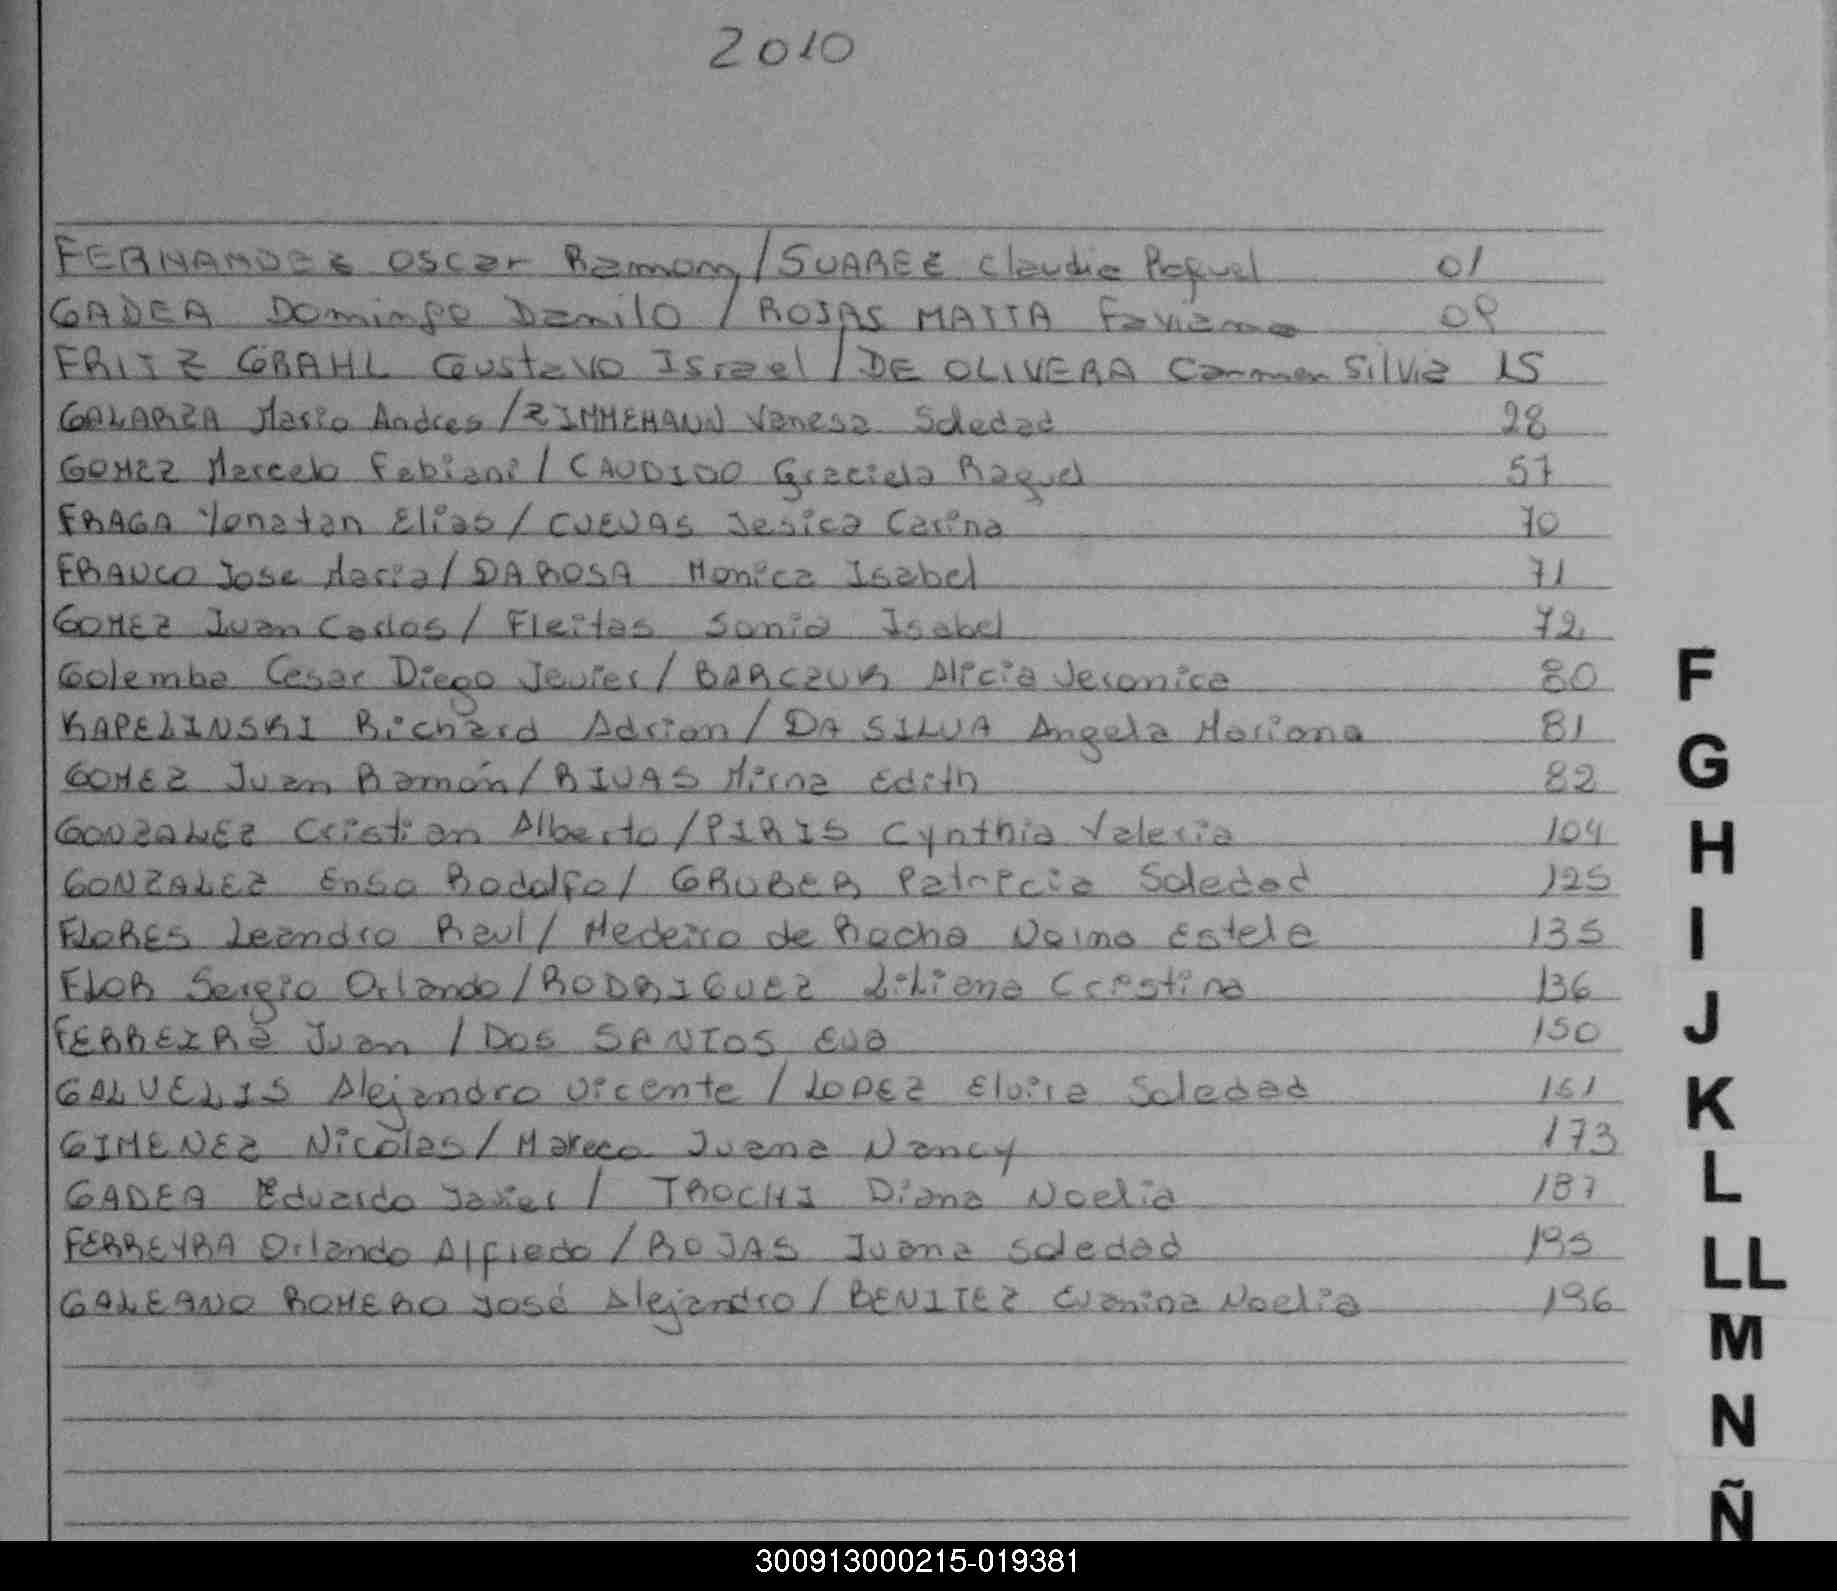 2010
FERNANDEZ Oscar Ramon / SUAREZ Claudia Raquel 01
GADEA Domingo Danilo / ROJAS MATTA Faviana 09
FRITZ GRAHL Gustavo Israel / DE OLIVERA Carmen Silvia 15
GALARZA Mario Andres / ZIMMEMANN Vanesa Soledad 28
GOMEZ Marcelo Fabiani / CAUDIDO Graciela Raquel 57
FRAGA Yonatan Elias / CUEVAS Jesica Carina 70
FRANCO Jose Maria / DAROSA Monica Isabel 71
GOMEZ Juan Carlos / Fleitas Sonia Isabel 72
Golemba Cesar Diego Javier / BARCZUK Alicia Veronica 80
KAPELINSKI Richard Adrian / DA SILVA Angela Mariana 81
GOMEZ Juan Ramón / RIVAS Mirna Edith 82
GONZALEZ Cristian Alberto / PIRIS Cynthia Valeria 104
GONZALEZ Enso Rodolfo / GRUBER Patricia Soledad 125
FLORES Leandro Raul / Medeiro de Rocha Estela 135
FLOR Sergio Orlando / RODRIGUEZ Liliana Cristina 136
FERREIRA Juan / DOS SANTOS Eva 150
GALVELIS Alejandro Vicente / LOPEZ Elvira Soledad 161
GIMENEZ Nicolas / Mareco Juana Nancy 173
GADEA Eduardo Javier / TROCHI Diana Noelia 187
FERREYRA Orlando Alfredo / ROJAS Juana Soledad 195
GALEANO ROMERO José Alejandro / BENITEZ Evanina Noelia 196
F
G
H
I
J
K
L
LL
M
N
Ñ
300913000215-019381